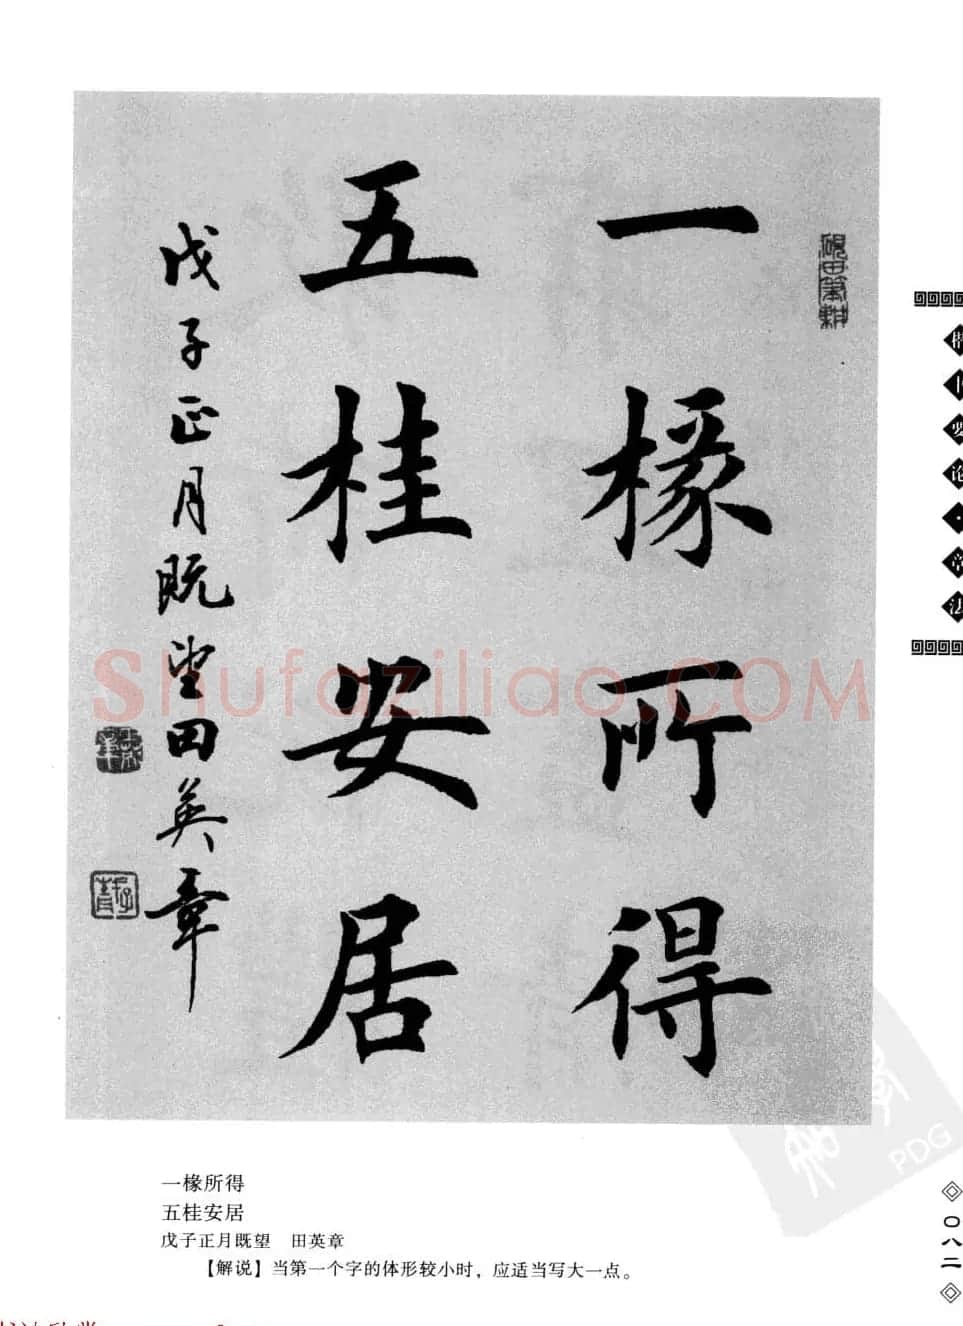 一椽所得
五桂安居
戊子正月既望田英章
砚田笔耕
楷书要论·章法
Shufaziliao.COM
PDG
一椽所得
五桂安居
戊子正月既望 田英章
【解说】当第一个字的体形较小时，应适当写大一点。
〇八二